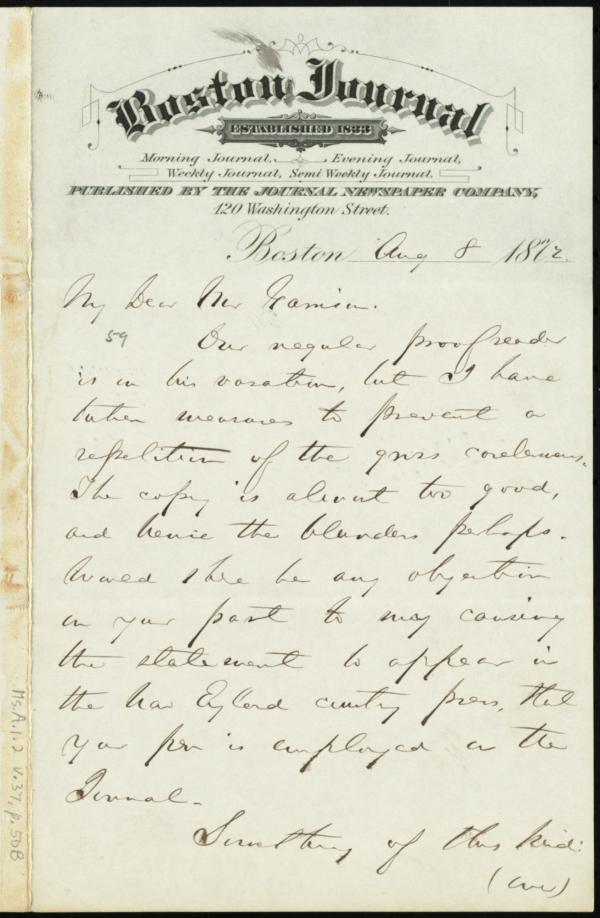 Boston Journal
ESTABLISHED 1833
Morning Journal, Evening Journal,
Weekly Journal, Semi Weekly Journal.
PUBLISHED BY THE JOURNAL NEWSPAPER COMPANY,
120 Washington Street.
Boston Aug 8 1872.
My Dear Mr Garrison.
59
Our regular proof reader
is on his vacation, but I have
taken measures to prevent a
repetition of the gross carelessness.
The copy is almost too good,
and hence the blunders perhaps.
Would there be any objection
on your part to my causing
the statement to appear in
the New England country press, that
your pen is employed on the
Journal.
Something of this kind:
(over)
Ms.A.1.2 v.37, p.50B